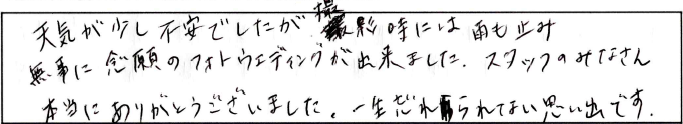 天気が少し不安でしたが撮影時には雨も止み
無事に念願のフォトウェディングが出来ました。スタッフのみなさん
本当にありがとうございました。一生忘れられてない思い出です。